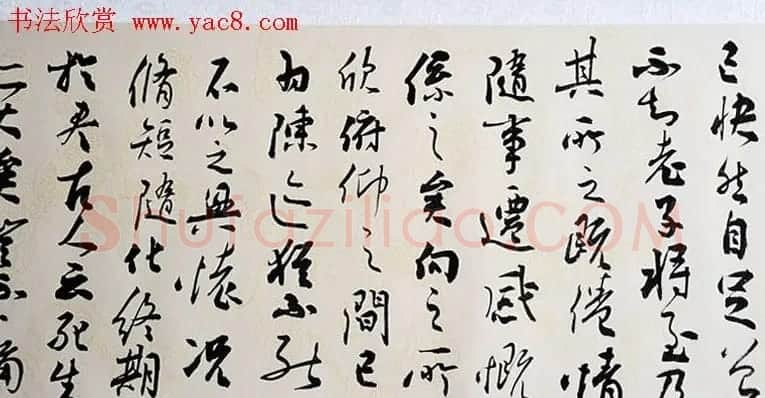 书法欣赏 www.yac8.com
己快然自足曾
不知老之将至及
其所之既倦情
随事遷感慨
係之矣向之所
欣俯仰之間已
為陳迹猶不能
不以之興懷况
脩短隨化終期
於盡古人云死生
亦大矣豈不痛
Shufaziliao.COM